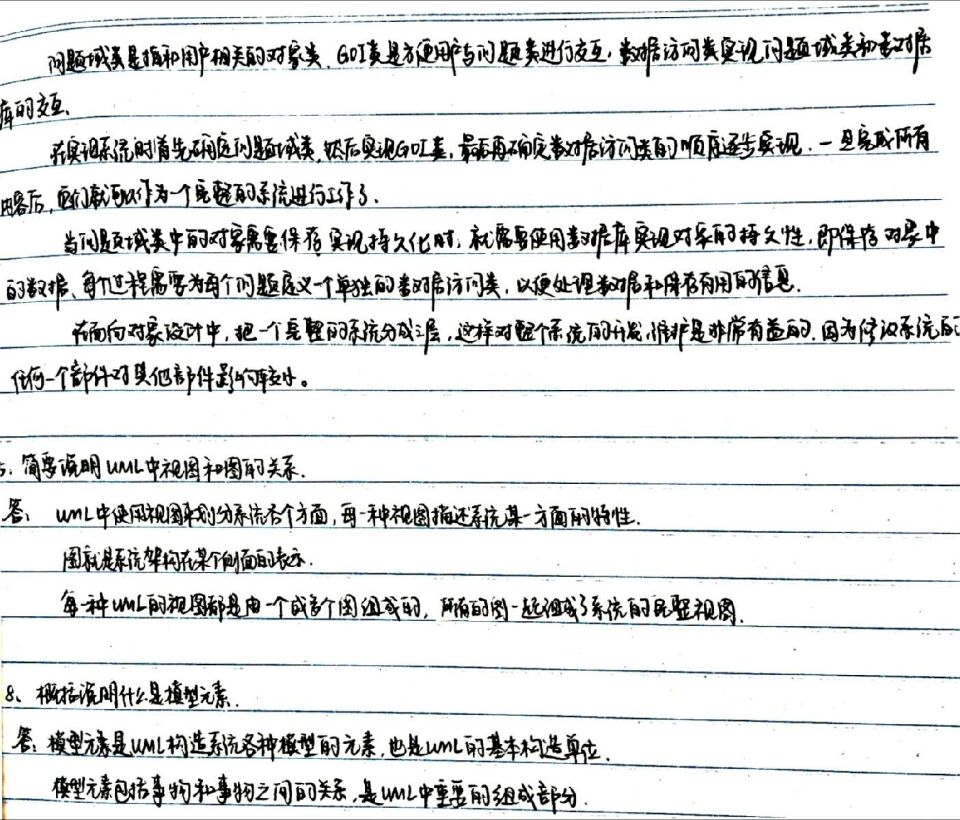 问题域类是指和用户相关的对象类、GUI类是方便用户与问题类进行交互,数据访问类实现问题域类和数据
库的交互、
在实现系统时首先确定问题域类,然后实现GUI类,最后再确定数据访问类的顺序逐步实现.一旦完成所有
内容后,它们就可以作为一个完整的系统进行工作了.
当问题域类中的对象需要保存实现持久化时,就需要使用数据库实现对象的持久性,即保存对象中
的数据、每个过程需要为每个问题定义一个单独的数据访问类,以便处理数据和保存有用的信息.
在面向对象设计中,把一个完整的系统分成三层,这样对整个系统的开发、维护是非常有益的.因为修改系统的
任何一个部件对其他部件影响较小。
5.简要说明UML中视图和图的关系.
答、UML中使用视图来划分系统各个方面,每一种视图描述系统某一方面的特性.
图就是系统架构在某个侧面的表示.
每一种UML的视图都是由一个或多个图组成的,所有的图一起组成了系统的完整视图.
8、概括说明什么是模型元素.
答:模型元素是UML构造系统各种模型的元素,也是UML的基本构造单位.
模型元素包括事物和事物之间的关系,是UML中重要的组成部分.